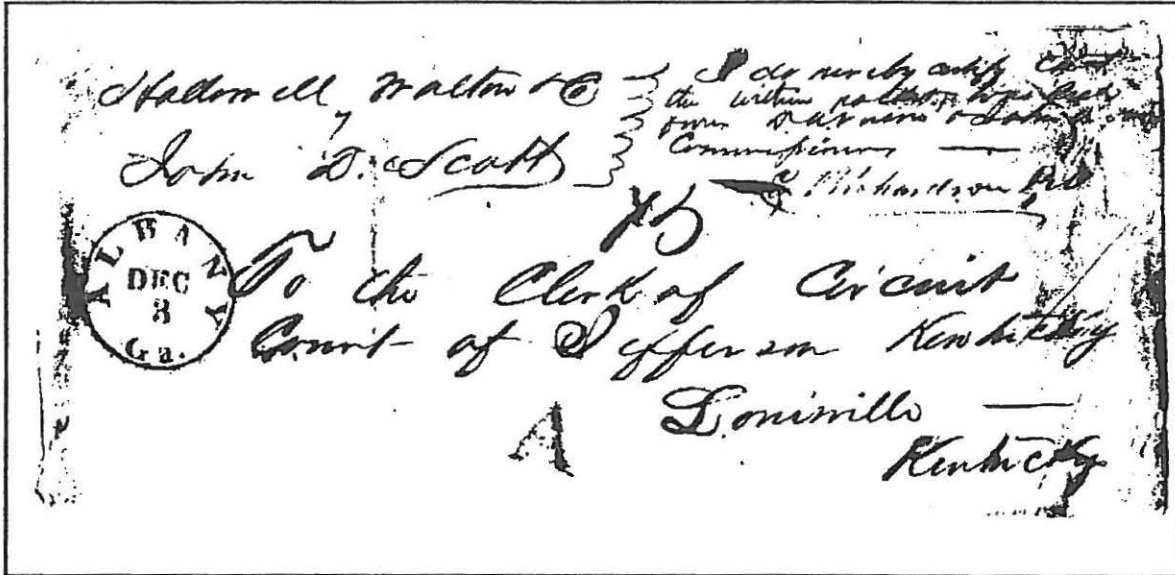 Hallowell, Walton & Co
John D. Scott
I do hereby certify that
the within
Commissioners —
Richardson, PM
ALBANY
DEC
Ga.
To the Clerk of Circuit
Court of Jefferson Kentucky
Louisville —
Kentucky
A